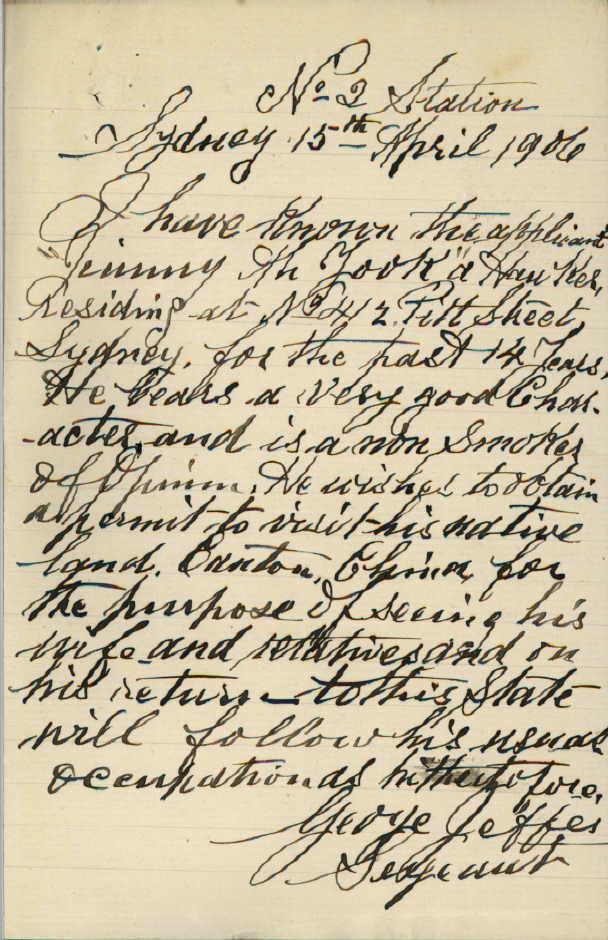 No 2 Station
Sydney 15th April 1906
I have known the applicant
"Jimmy Ah Yook" a Hawker,
Residing at No 412 Pitt Street,
Sydney, for the past 14 Years,
He bears a very good Char-
-acter, and is a non Smoker
of Opium. He wishes to obtain
a permit to visit his native
land, Canton, China, for
the purpose of seeing his
wife and relatives and on
his return to this State
will follow his usual
occupation as hithertofore,
George Jeffes
Sergeant